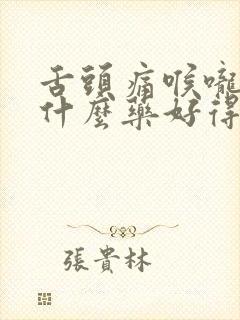 舌頭痛喉嚨
什麼藥好得
張貴林